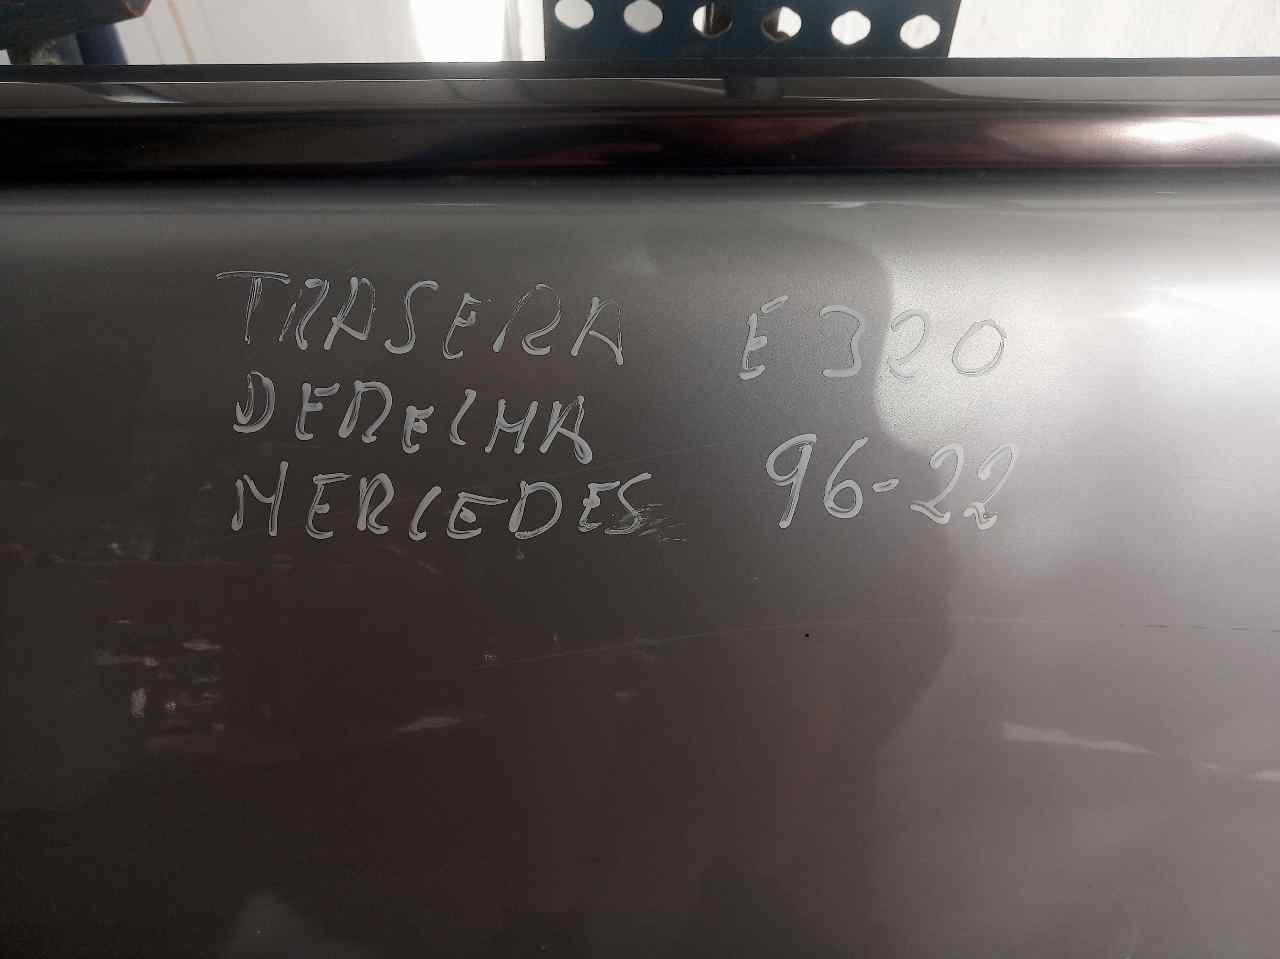 TRASERA E 320
DERECHA
MERCEDES 96-22